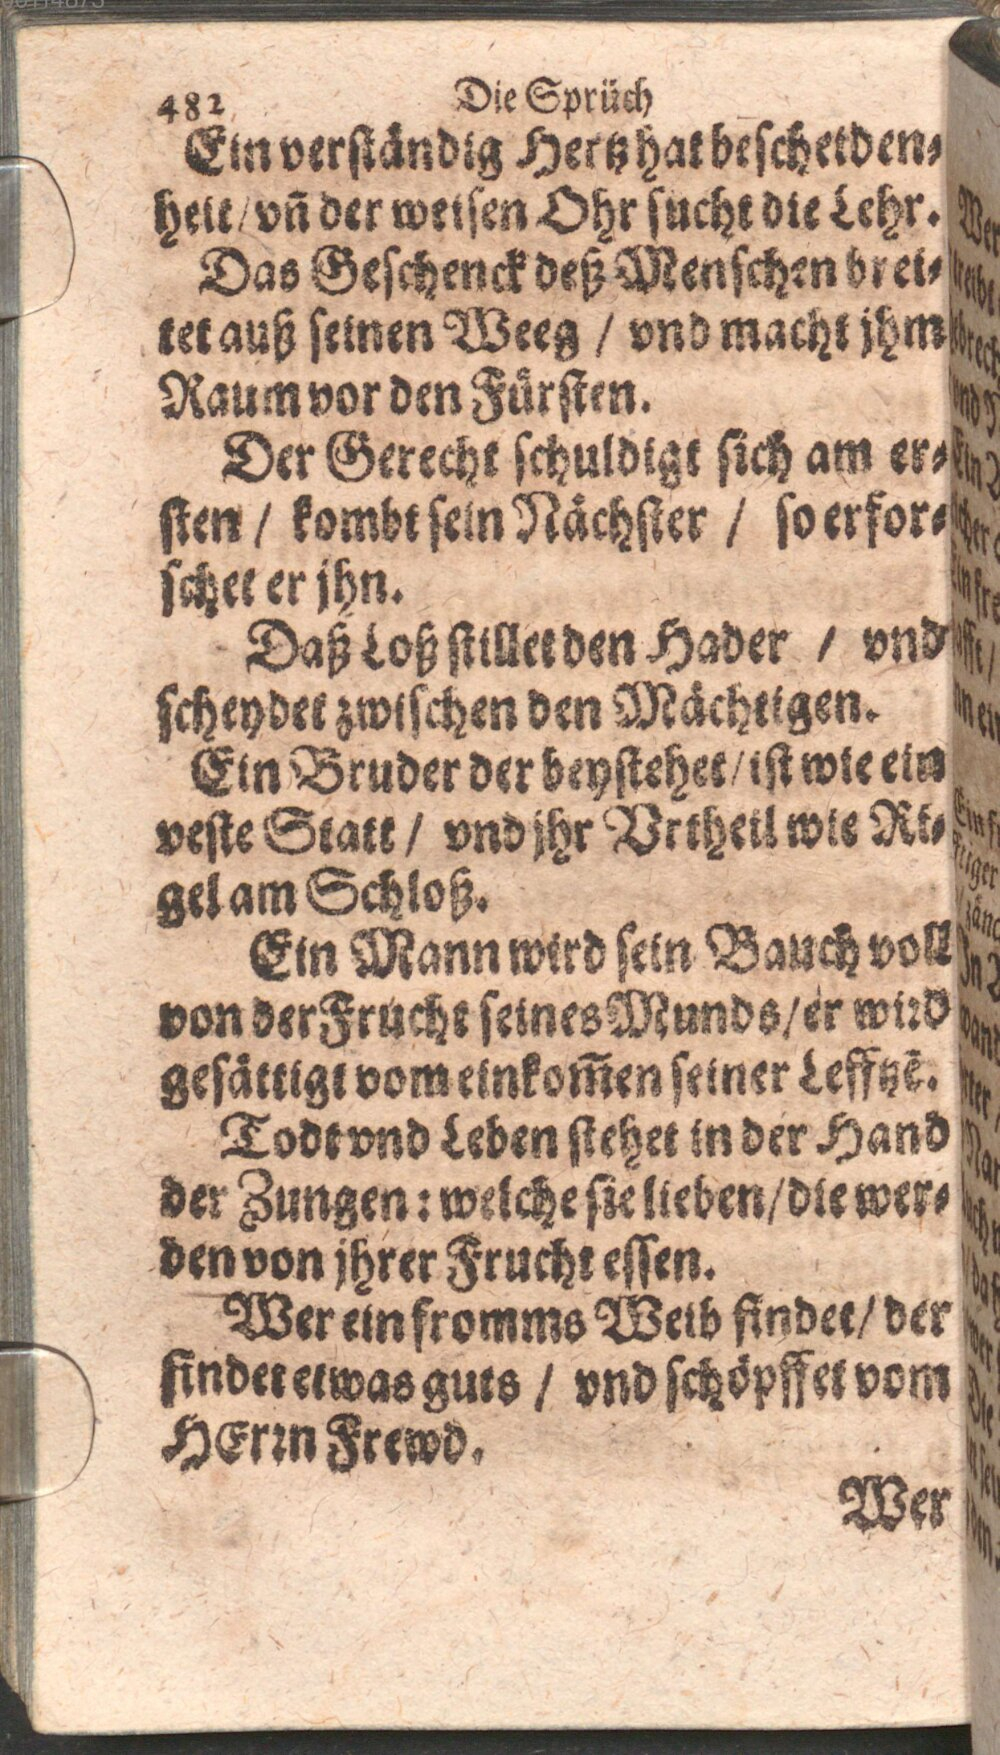 482 Die Sprüch
Ein verständig Hertz hat bescheiden-
heit / vn̄ der weisen Ohr sucht die Lehr.
Das Geschenck deß Menschen brei-
tet auß seinen Weeg / vnd macht jhm
Raum vor den Fürsten.
Der Gerecht schuldigt sich am er-
sten / kombt sein Nächster / so erfor-
schet er jhn.
Daß Loß stillet den Hader / vnd
scheydet zwischen den Mächtigen.
Ein Bruder der beystehet / ist wie ein
veste Statt / vnd jhr Vrtheil wie Ri-
gel am Schloß.
Ein Mann wird sein Bauch voll
von der Frucht seines Munds / er wird
gesättigt vom einkom̄en seiner Lefftzē.
Todt vnd Leben stehet in der Hand
der Zungen: welche sie lieben / die wer-
den von jhrer Frucht essen.
Wer ein fromms Weib findet / der
findet etwas guts / vnd schöpffet vom
HErrn Frewd.
Wer